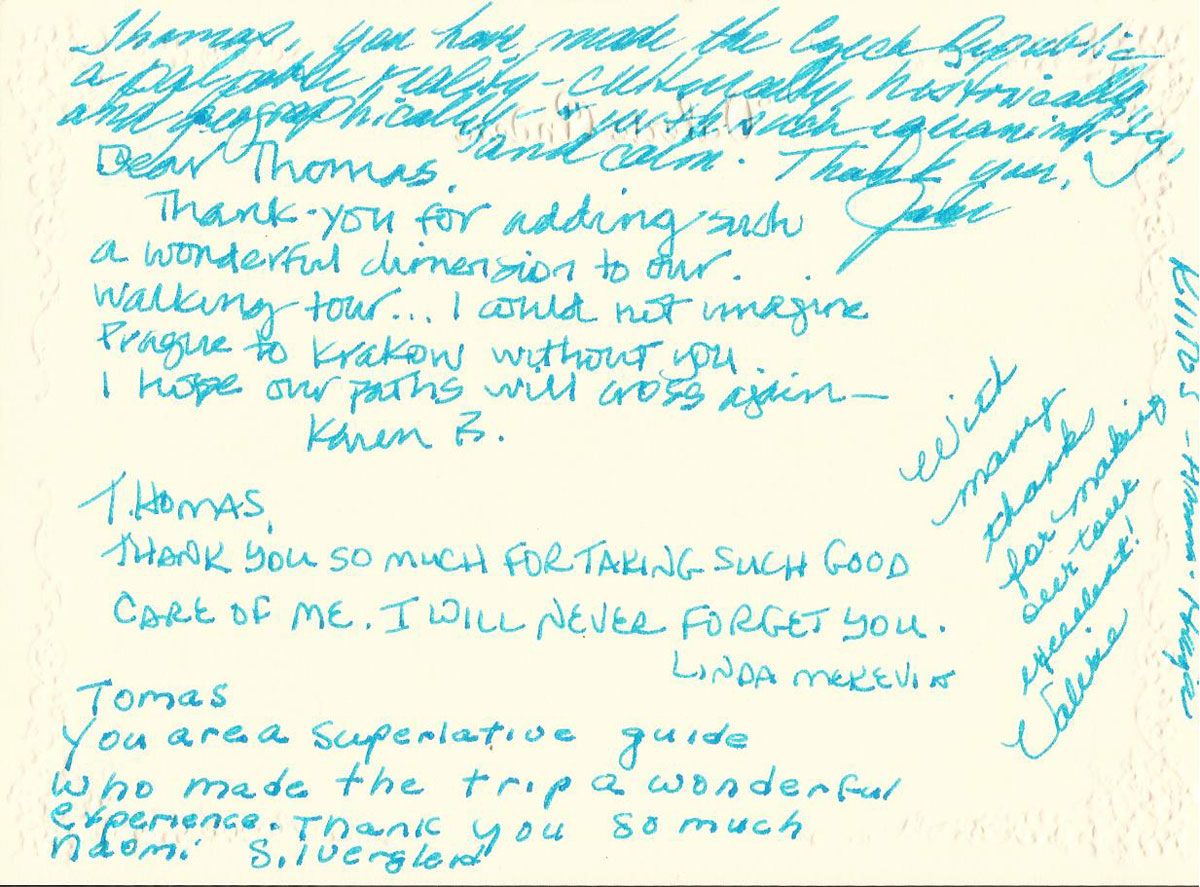 Thomas, you have made the Czech Republic
a palpable reality - culturally, historically
and geographically - with such equanimity,
and calm. Thank you,
Dear Thomas,
Thank-you for adding such
a wonderful dimension to our
walking tour... I could not imagine
Prague to Krakow without you.
I hope our paths will cross again—
Karen B.
THOMAS,
THANK YOU SO MUCH FOR TAKING SUCH GOOD
CARE OF ME. I WILL NEVER FORGET YOU.
LINDA
Tomas
You are a superlative guide
who made the trip a wonderful
experience. Thank you so much
Naomi
With
many
thanks
for making
our tour
excellent!
Valerie